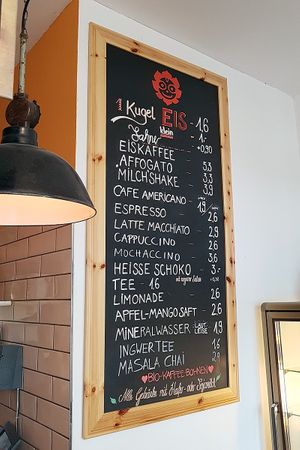 1 Kugel EIS 1.6
klein 1.-
Sahne +0,90
EISKAFFEE
AFFOGATO 3.3
MILCHSHAKE 3.9
CAFE AMERICANO 1.9
ESPRESSO 2.6
LATTE MACCHIATO 2.9
CAPPUCCINO 2.6
MOCHACCINO 3.-
HEISSE SCHOKO
TEE 1.6
LIMONADE 2.6
APFEL-MANGOSAFT 2.6
MINERALWASSER 1.9
INGWERTEE
MASALA CHAI 2.9
BIO-KAFFEE BOHNEN
Alle Getränke mit Hafer- oder Sojamilch